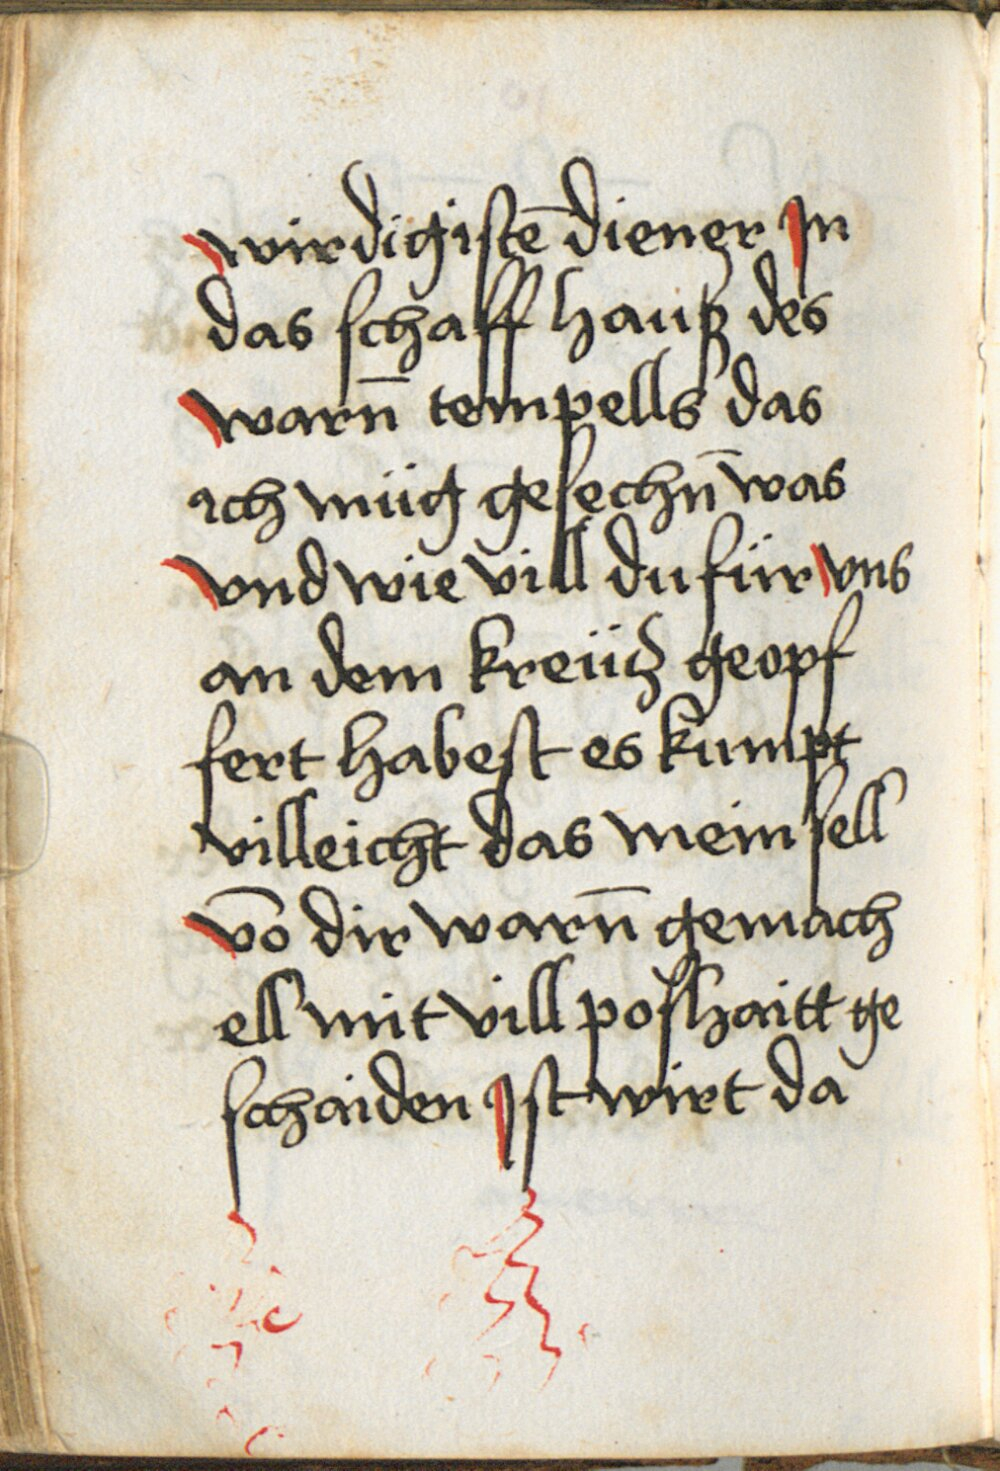 wirdigistē diener Jn
das schaff hauß des
warn̄ tempells das
ich müg gesechn̄ was
vnd wie vill du für vns
an dem kreütz geopf
fert habest es kumpt
villeicht das mein sell
vō dir warn̄ gemach
ell mit vill poshaitt ge
schaiden Jst wirt da